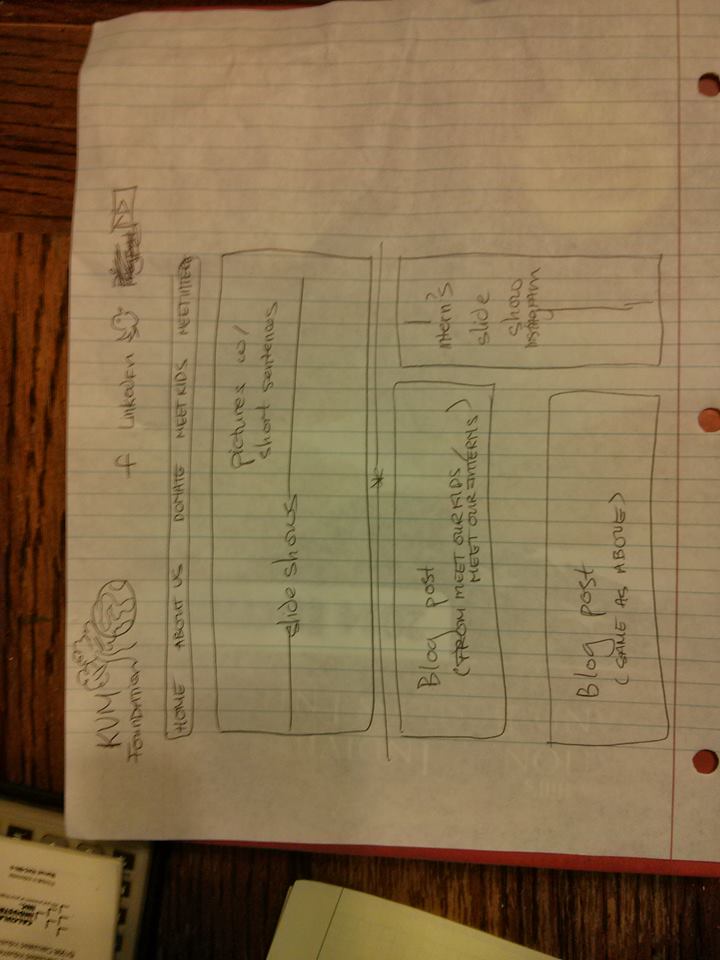 KVM
Foundation
f LinkedIn
HOME ABOUT US DONATE MEET KIDS MEET INTERN
Pictures w/
short sentences
slide shows
Blog post
(FROM MEET OUR KIDS/
MEET OUR INTERNS)
Intern's
slide
show
INSTAGRAM
Blog post
(SAME AS ABOVE)